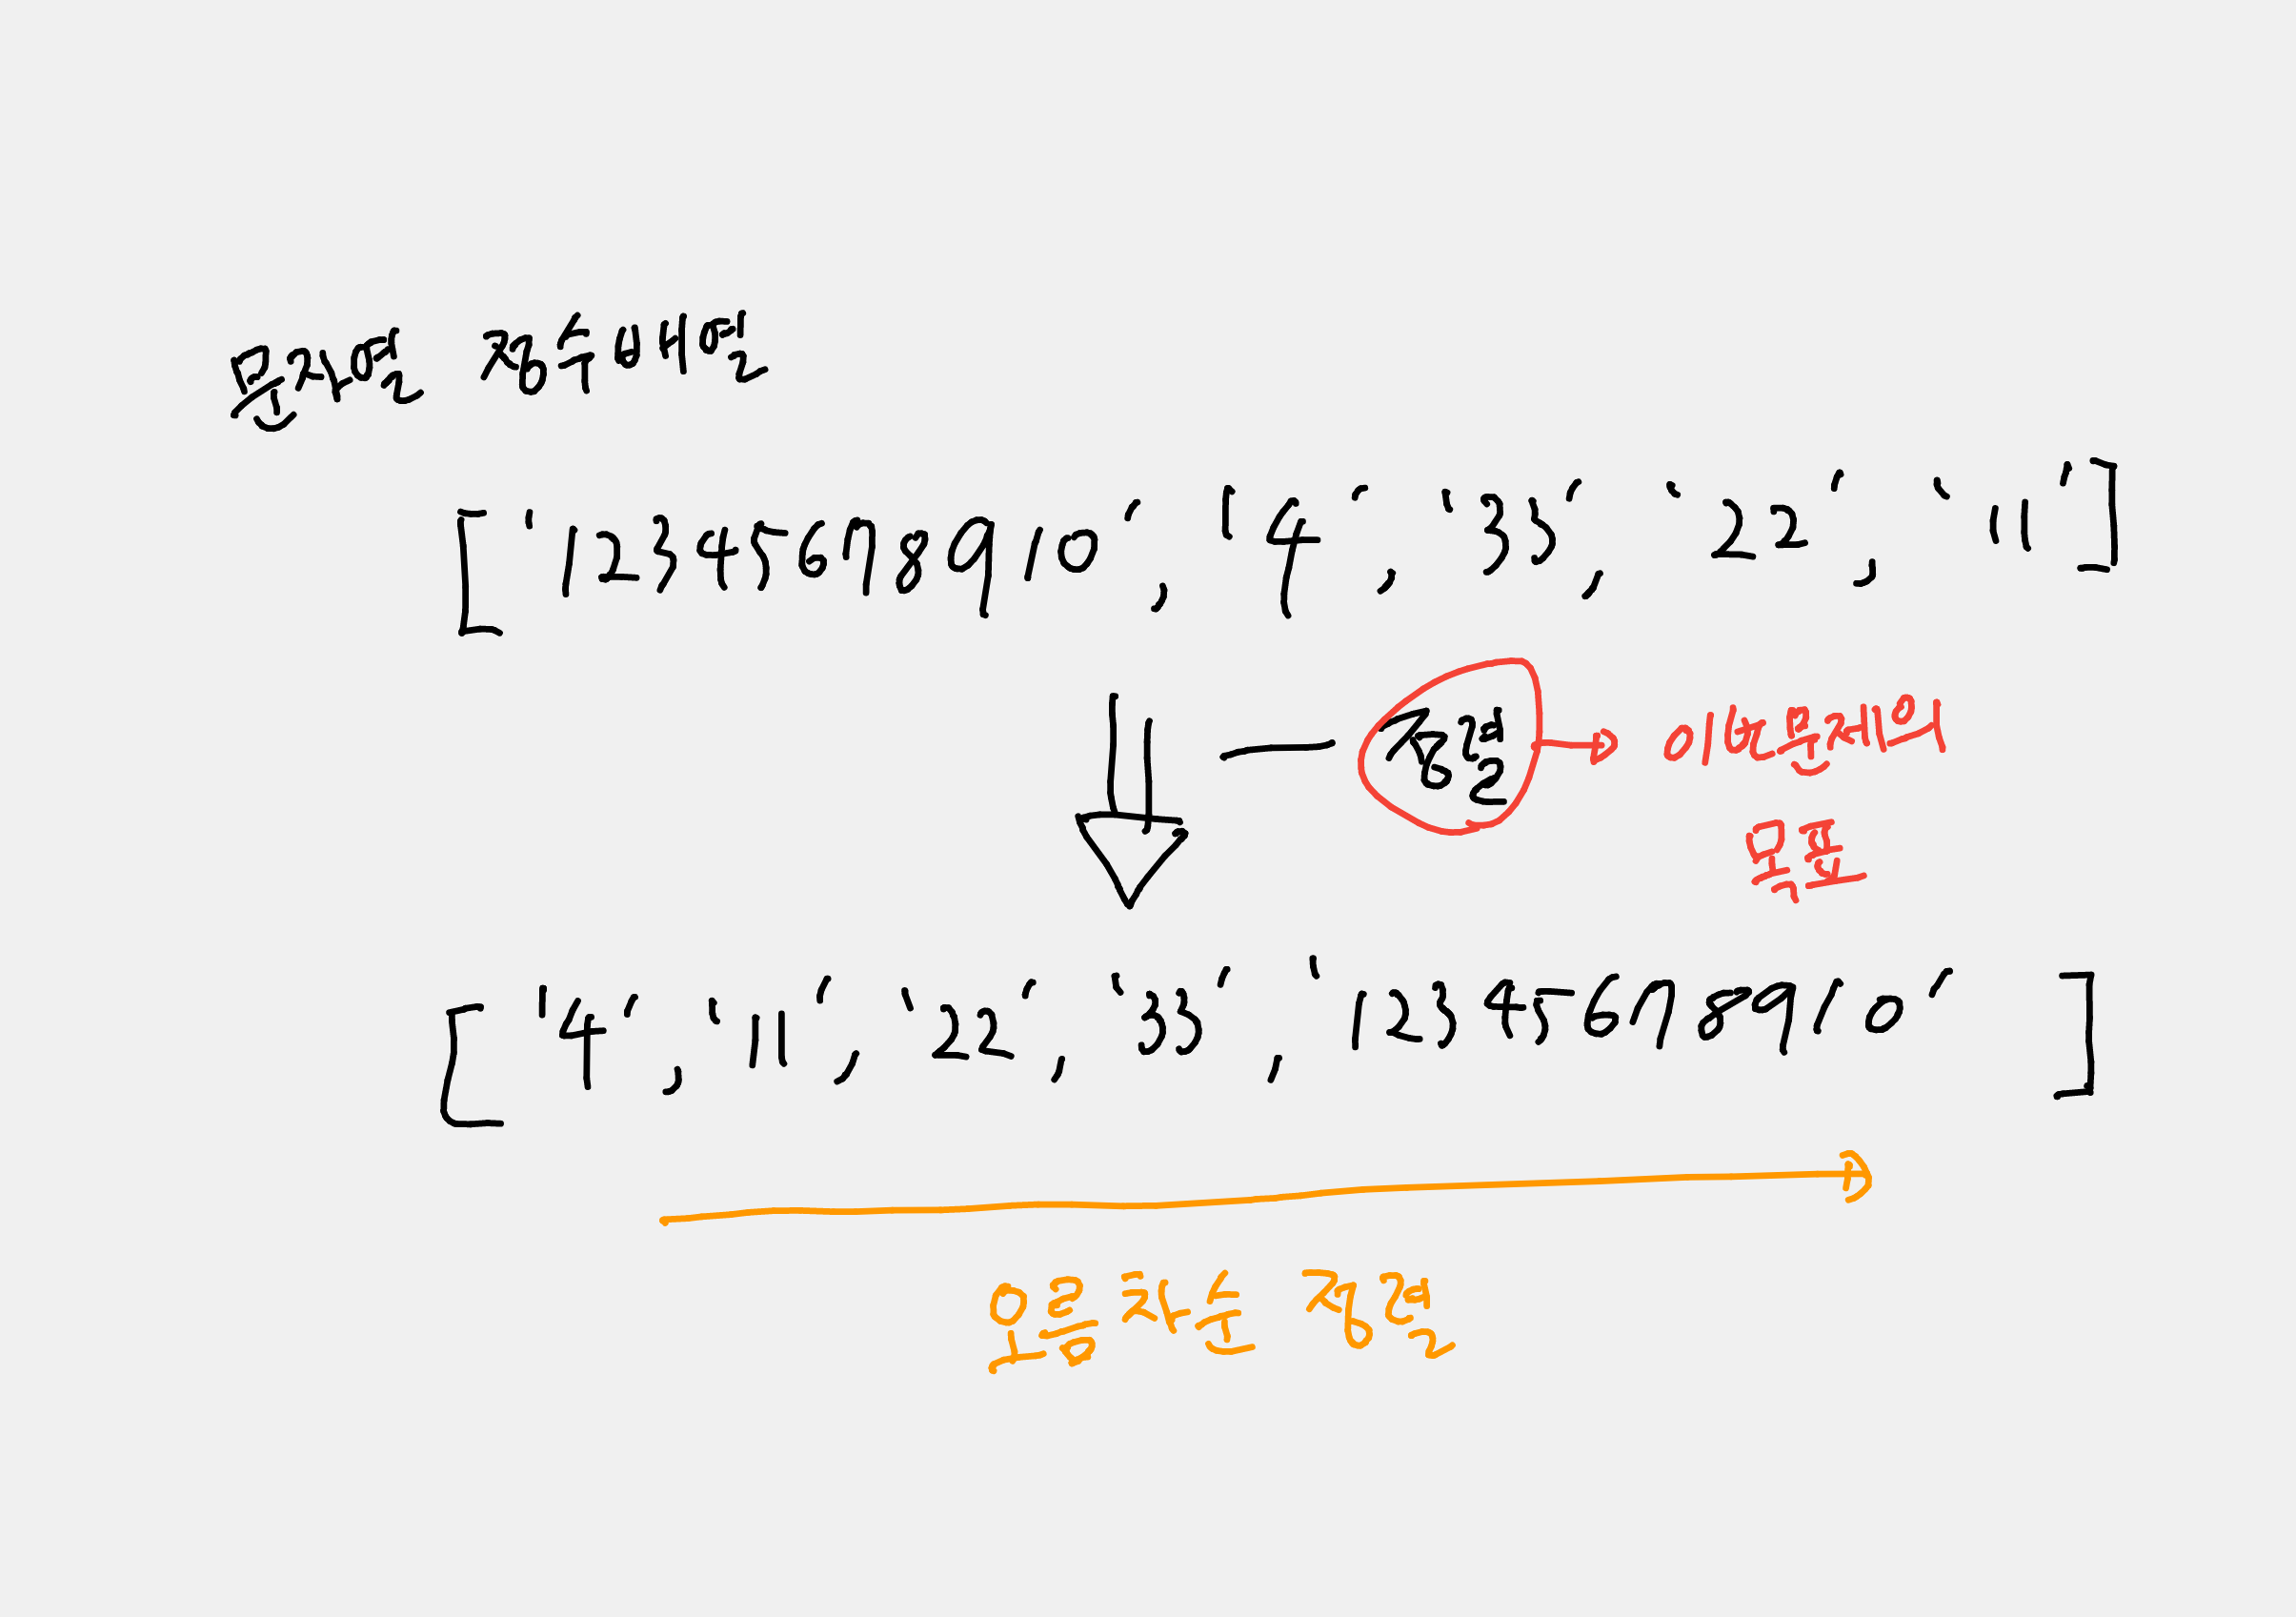 문자열 정수배열
['12345678910', '4', '33', '22', '11']
정렬
이번문제의
목표
['4', '11', '22', '33', '12345678910']
오름차순 정렬